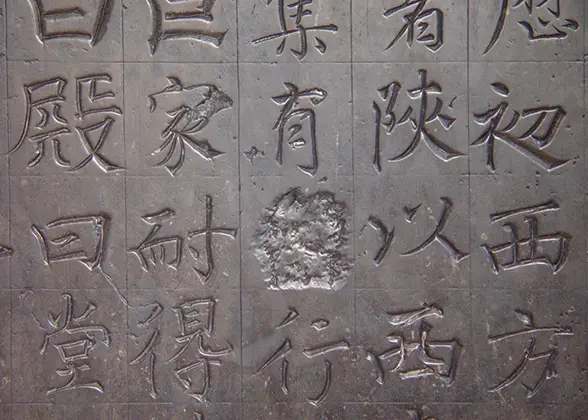 初西方
者陝以西
集有行
巨家耐得
曰殿曰堂